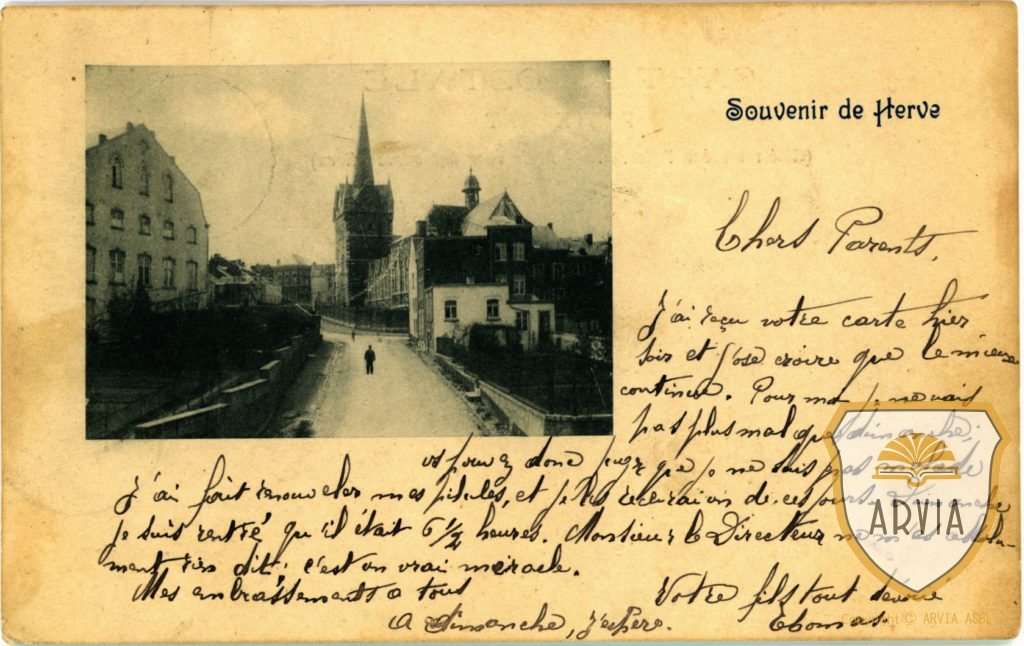 Souvenir de Herve
Chers Parents,
J'ai reçu votre carte hier
soir et j'ose croire que le mieux
continue. Pour moi je ne vais
pas plus mal que dimanche;
vs pouvez donc juger que je ne suis pas malade
J'ai fait renouveler mes pilules, et je les recevrai un de ces jours. Dimanche,
je suis rentré, qu'il était 6 1/2 heures. Monsieur le Directeur ne m'a absolu-
ment rien dit: c'est un vrai miracle.
Mes embrassements à tous
Votre fils tout dévoué
A Dimanche, j'espère.
Thomas.
ARVIA
Copyright © ARVIA ASBL